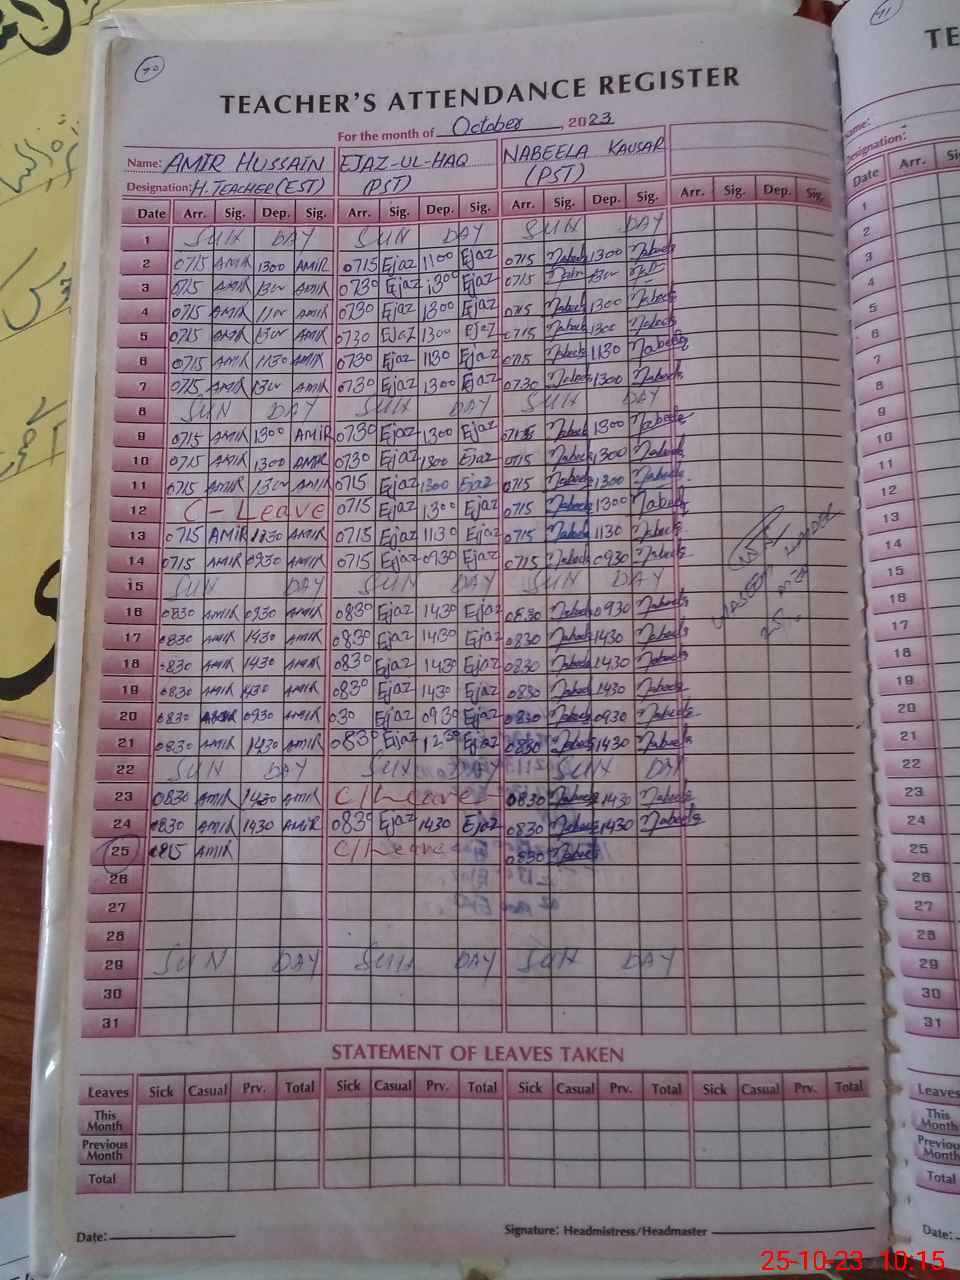 90
TEACHER'S ATTENDANCE REGISTER
For the month of October, 2023
Name: AMIR HUSSAIN EJAZ-UL-HAQ NABEELA KAUSAR
Designation: H.TEACHER(EST) (PST) (PST)
Date Arr. Sig. Dep. Sig. Arr. Sig. Dep. Sig. Arr. Sig. Dep. Sig. Arr. Sig. Dep. Sig.
1 SUN DAY SUN DAY SUN DAY
2 0715 AMIR 1300 AMIR 0715 Ejaz 1100 Ejaz 0715 Nabeela 1300 Nabeela
3 0715 AMIR 1300 AMIR 0730 Ejaz 1300 Ejaz 0715
4 0715 AMIR AMIR 0730 Ejaz 1300 Ejaz 0715 Nabeela 1300 Nabeela
5 0715 AMIR 1300 AMIR 0730 Ejaz 1300 Ejaz 0715 Nabeela 1300 Nabeela
6 0715 AMIR 1130 AMIR 0730 Ejaz 1130 Ejaz 0715 Nabeela 1130 Nabeela
7 0715 AMIR 1300 AMIR 0730 Ejaz 1300 Ejaz 0730 Nabeela 1300 Nabeela
8 SUN DAY SUN DAY SUN DAY
9 0715 AMIR 1300 AMIR 0730 Ejaz 1300 Ejaz 0715 Nabeela 1300 Nabeela
10 0715 AMIR 1300 AMIR 0730 Ejaz 1300 Ejaz 0715 Nabeela 1300 Nabeela
11 0715 AMIR 1300 AMIR 0715 Ejaz 1300 Ejaz 0715 Nabeela 1300 Nabeela
12 C - Leave 0715 Ejaz 1300 Ejaz 0715 Nabeela 1300 Nabeela
13 0715 AMIR 1130 AMIR 0715 Ejaz 1130 Ejaz 0715 Nabeela 1130 Nabeela
14 0715 AMIR 0930 AMIR 0715 Ejaz 0930 Ejaz 0715 Nabeela 0930 Nabeela
15 SUN DAY SUN DAY SUN DAY
16 0830 AMIR 0930 AMIR 0830 Ejaz 1430 Ejaz 0830 Nabeela 0930 Nabeela
17 0830 AMIR 1430 AMIR 0830 Ejaz 1430 Ejaz 0830 Nabeela 1430 Nabeela
18 0830 AMIR 1430 AMIR 0830 Ejaz 1430 Ejaz 0830 Nabeela 1430 Nabeela
19 0830 AMIR 1430 AMIR 0830 Ejaz 1430 Ejaz 0830 Nabeela 1430 Nabeela
20 0830 AMIR 0930 AMIR 030 Ejaz 0930 Ejaz 0830 Nabeela 0930 Nabeela
21 0830 AMIR 1430 AMIR 0830 Ejaz 1230 Ejaz 0830 Nabeela 1430 Nabeela
22 SUN DAY SUN DAY SUN DAY
23 0830 AMIR 1430 AMIR C/Leave 0830 Nabeela 1430 Nabeela
24 0830 AMIR 1430 AMIR 0830 Ejaz 1430 Ejaz 0830 Nabeela 1430 Nabeela
25 0815 AMIR C/Leave 0830 Nabeela
26
27
28
29 SUN DAY SUN DAY SUN DAY
30
31
STATEMENT OF LEAVES TAKEN
Leaves Sick Casual Prv. Total Sick Casual Prv. Total Sick Casual Prv. Total Sick Casual Prv. Total
This Month
Previous Month
Total
Date: Signature: Headmistress/Headmaster
91
TE
Name:
Designation:
Date Arr.
1
2
3
4
5
6
7
8
9
10
11
12
13
14
15
16
17
18
19
20
21
22
23
24
25
26
27
28
29
30
31
Leaves
This Month
Previous Month
Total
Date:
25-10-23 10:15